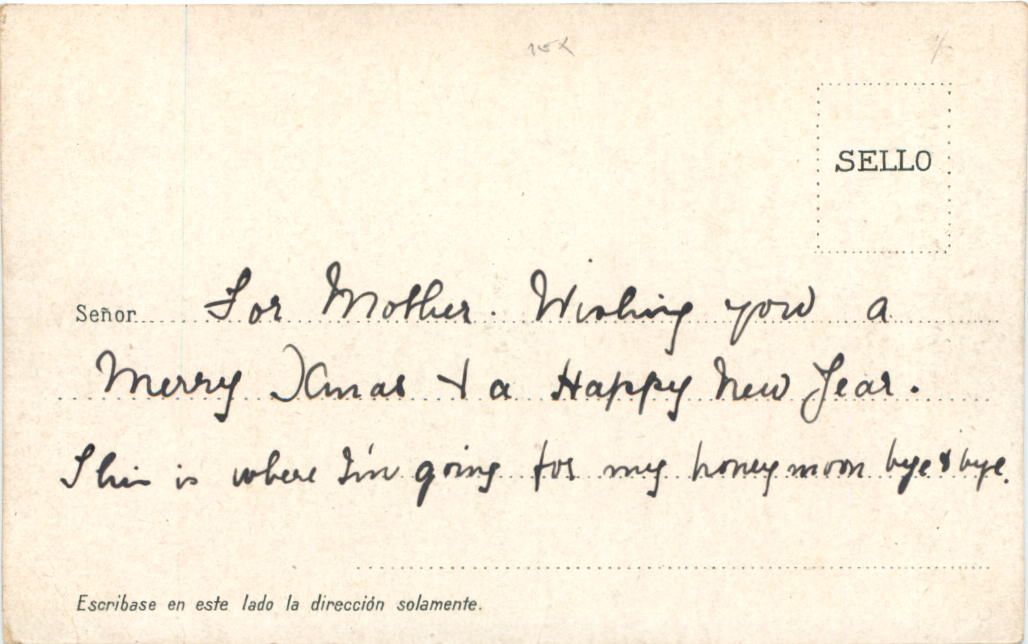 SELLO
Señor For Mother. Wishing you a
Merry Xmas & a Happy New Year.
This is where I'm going for my honeymoon bye & bye.
Escribase en este lado la dirección solamente.